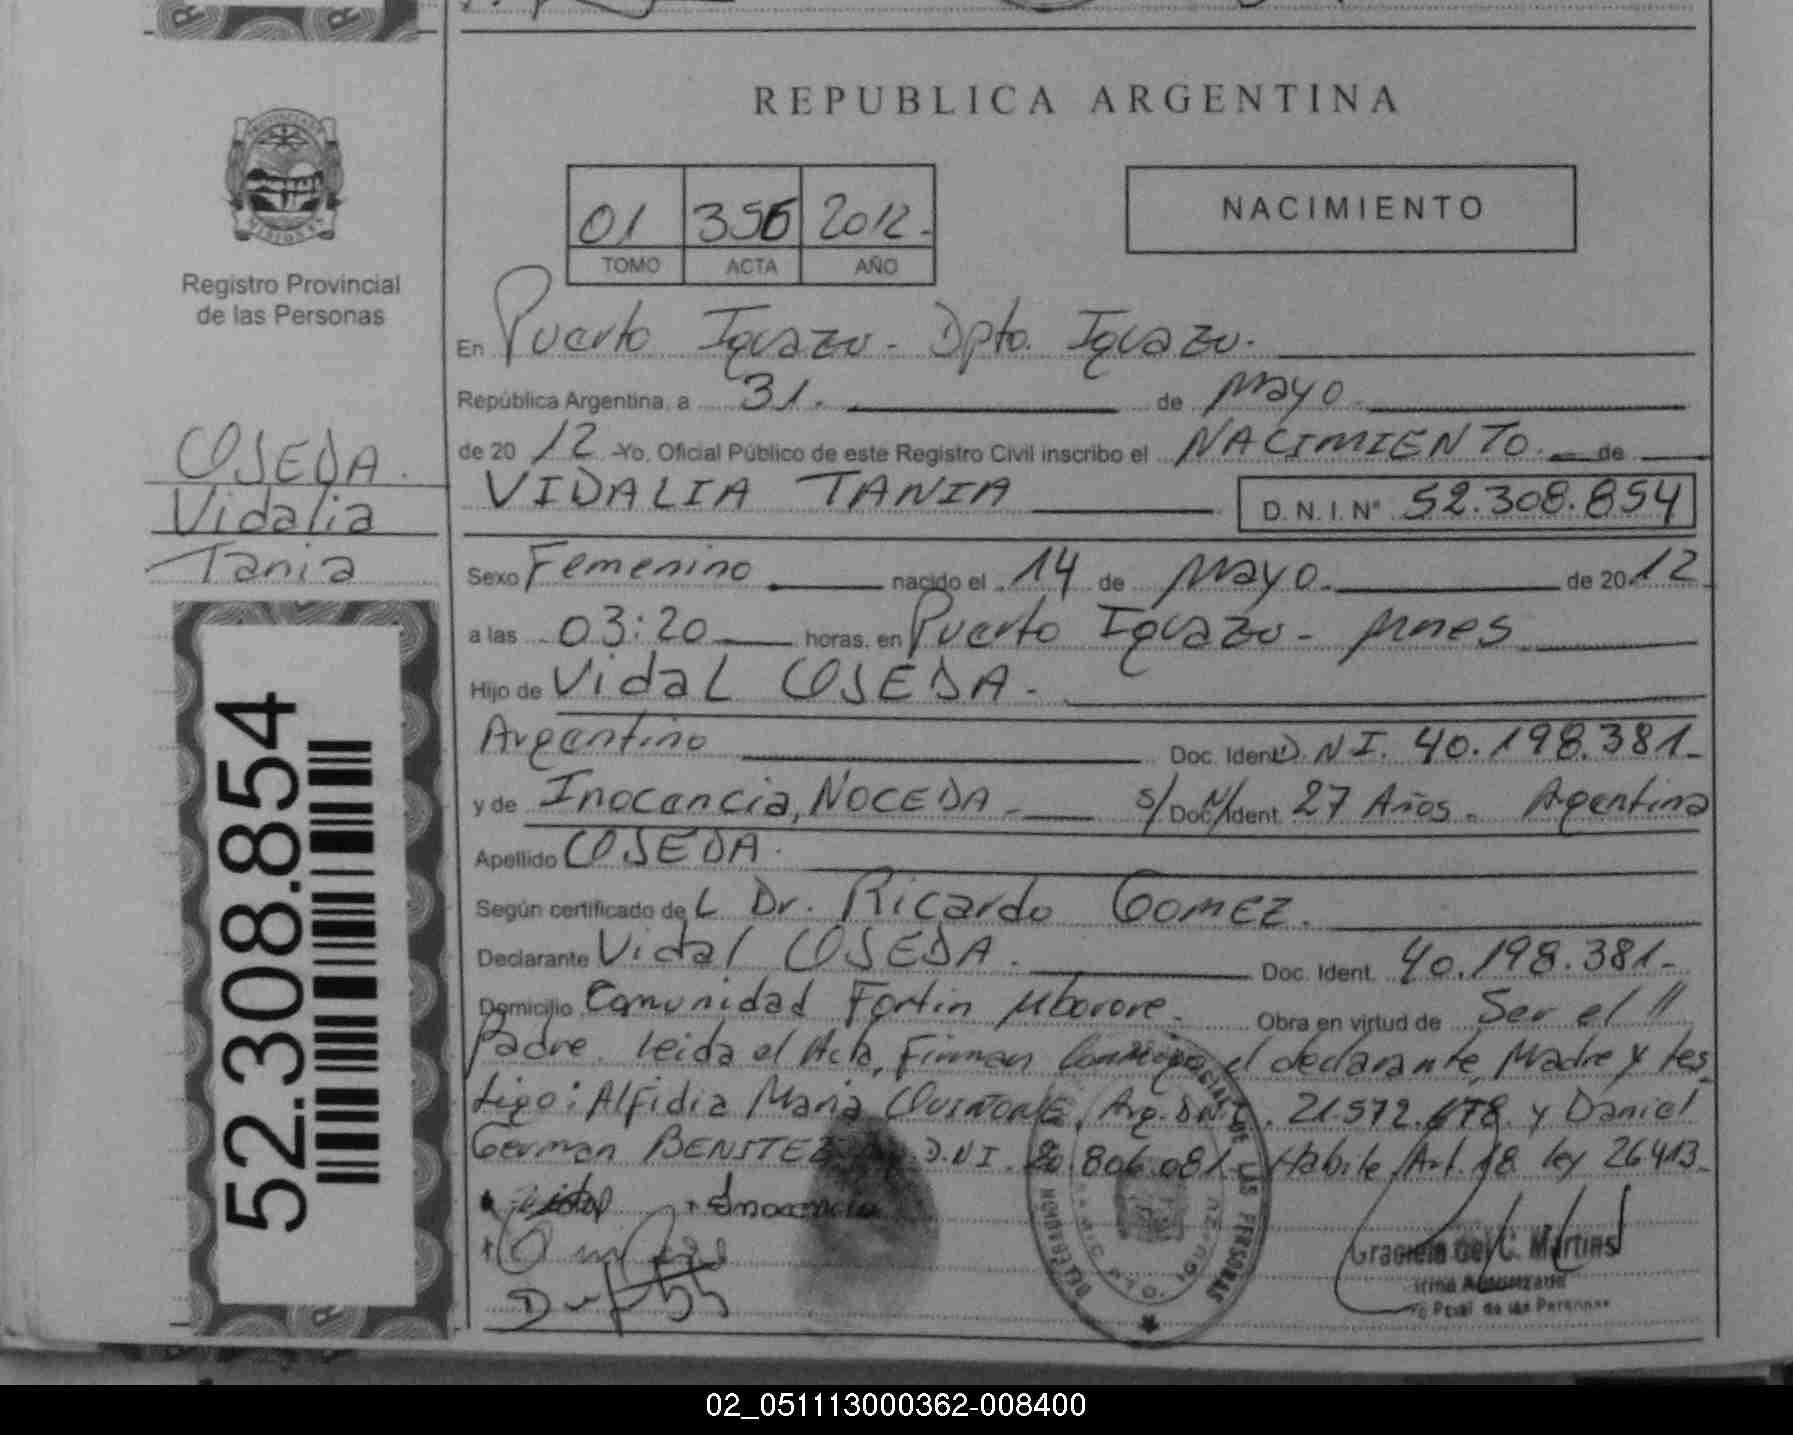 REPUBLICA ARGENTINA
01 356 2012.
TOMO ACTA AÑO
NACIMIENTO
Registro Provincial
de las Personas
OJEDA.
Vidalia
Tania
52.308.854
En Puerto Iguazu - Dpto. Iguazu.
República Argentina, a 31. de Mayo
de 20 12 -Yo, Oficial Público de este Registro Civil inscribo el NACIMIENTO. de
VIDALIA TANIA D.N.I. Nº 52.308.854
Sexo Femenino nacido el 14 de Mayo. de 20 12
a las 03:20 horas, en Puerto Iguazu - Mnes
Hijo de Vidal OJEDA.
Argentino Doc. Ident. D.N.I. 40.198.381-
y de Inocencia, NOCEDA - s/ Doc. N/ Ident. 27 Años. Agentina
Apellido OJEDA.
Según certificado de L Dr. Ricardo GOMEZ.
Declarante Vidal OJEDA. Doc. Ident. 40.198.381-
Domicilio Comunidad Fortin Mborore. Obra en virtud de Ser el //
Padre. leida el Acta, Firman Conmigo el declarante, Madre y tes
tigo: Alfidia Maria QUIÑONE, Arg. D.N.I. 21.572.678 y Daniel
German BENITEZ D.N.I. 20.806.081 Habile Art. 18 ley 26413.
Inocencia
DELEGACION LAS PERSONAS
Graciela del C. Martins
Firma Autorizada
de las Personas
02_051113000362-008400